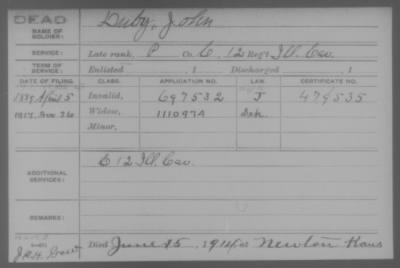 DEAD
NAME OF SOLDIER: Duby, John
SERVICE: Late rank, P Co. C, 12 Reg't Ill. Cav.
TERM OF SERVICE: Enlisted , 1 Discharged , 1
DATE OF FILING. CLASS. APPLICATION NO. LAW. CERTIFICATE NO.
1889 April 5 Invalid, 697532 J 479535
1917, 26 Widow, 111097A
Minor,
ADDITIONAL SERVICES: C 12 Ill. Cav.
REMARKS:
Died June 15, 1914, at Newton Kans